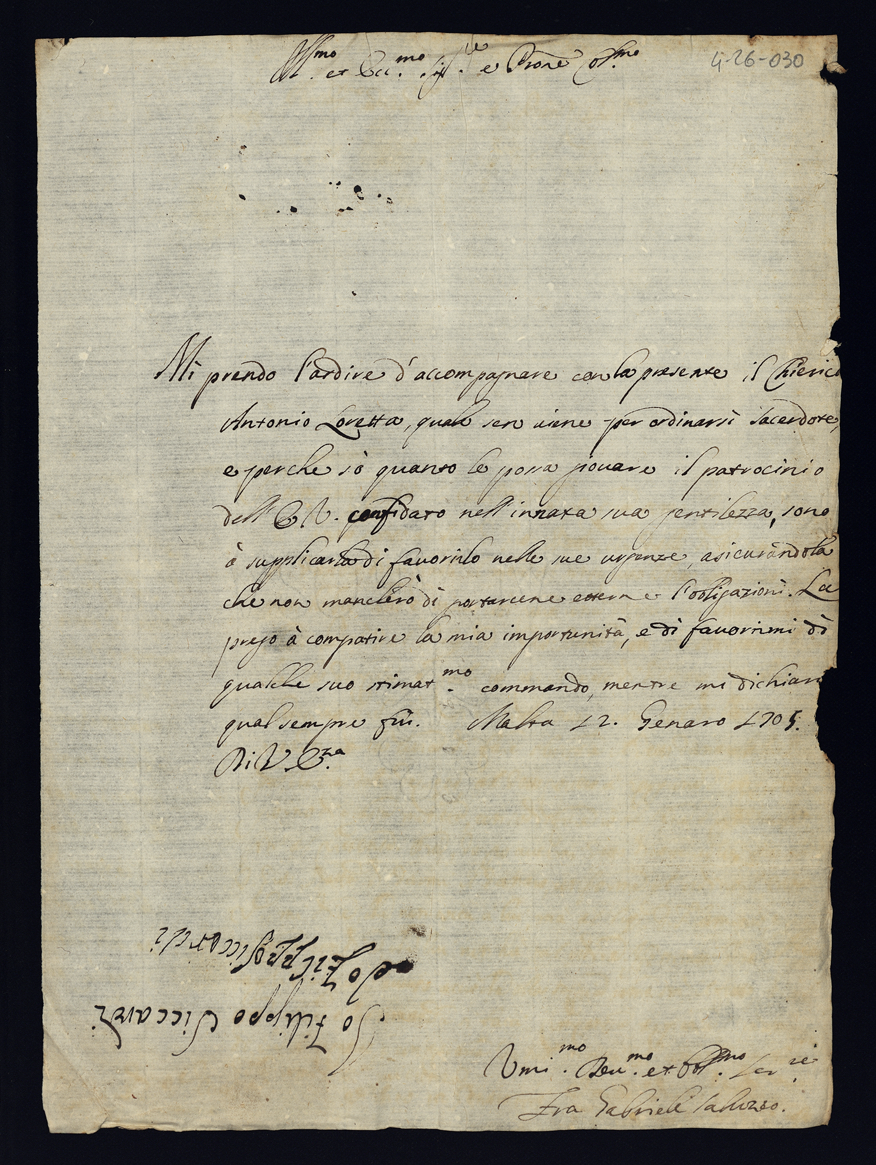 Ill.mo et Ecc.mo Sig.re e Prone Col.mo
4-26-030
Mi prendo l'ardire d'accompagnare con la presente il Chierico
Antonio Loretta, quale sen viene per ordinarsi sacerdote,
e perche sò quanto le possa giovare il patrocinio
dell' E V. confidato nell' innata sua gentilezza, sono
à supplicarla di favorirlo nelle sue urgenze, asicurandola
che non mancherò di portarcene eterne l'obligazioni. La
prego à compatire la mia importunità, e di favorirmi di
qualche suo stimat.mo commando, mentre mi dichiaro
qual sempre fui. Malta 12. Genaro 1705.
Di V. E.za
Umi.mo Deu.mo et Obl.mo Ser.re
Fra Gabriele Saluzzo.
Io Filippo Siccardi
Io Filippo Siccardi